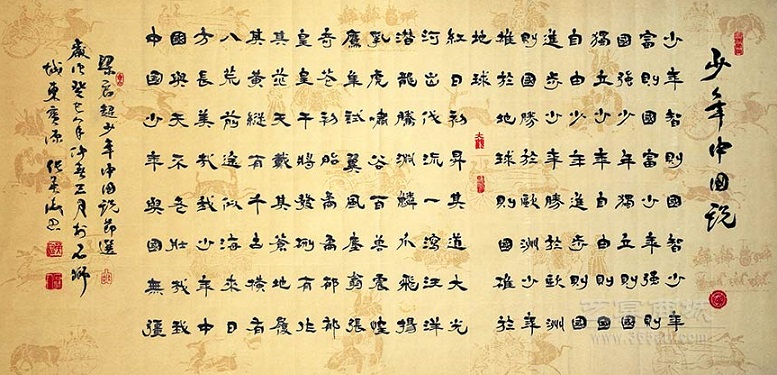 少年中國說
少年智則國智少年
富則國富少年強則
國強少年獨立則國
獨立少年自由則國
自由少年進步則國
進步少年勝於歐洲
則國勝於歐洲少年
雄於地球則國雄於
地球
紅日初昇其道大光
河出伏流一瀉汪洋
潛龍騰淵鱗爪飛揚
乳虎嘯谷百獸震惶
鷹隼試翼風塵翕張
奇花初胎矞矞
皇皇干將發硎有作
天戴其蒼地履
其黃縱有千古橫有
八荒前途似海來日
方長美哉我少年中
國與天不老壯哉我
中國少年與國無疆
梁啟超少年中國說節選
歲次癸巳年仲春三月於石獅
城東